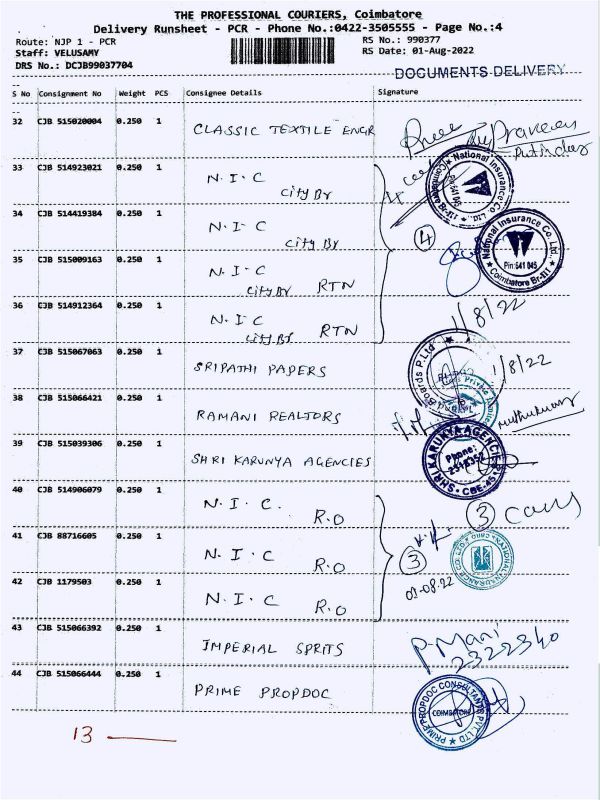 THE PROFESSIONAL COURIERS, Coimbatore
Delivery Runsheet - PCR - Phone No.:0422-3505555 - Page No.:4
Route: NJP 1 - PCR
RS No.: 990377
Staff: VELUSAMY
RS Date: 01-Aug-2022
DRS No.: DCJB99037704
DOCUMENTS DELIVERY
S No Consignment No Weight PCS Consignee Details Signature
32 CJB 515020004 0.250 1 CLASSIC TEXTILE ENGR
Praveen
33 CJB 514923021 0.250 1 N.I.C
City Br
National Insurance Co. Ltd.
Pin:641 045
Coimbatore Br-III
34 CJB 514419384 0.250 1 N.I.C
City Br
4
National Insurance Co. Ltd.
Pin:641 045
Coimbatore Br-III
35 CJB 515009163 0.250 1 N.I.C
City Br RTN
36 CJB 514912364 0.250 1 N.I.C
City Br RTN
1/8/22
37 CJB 515067063 0.250 1 SRIPATHI PAPERS
Boards P.Ltd
1/8/22
38 CJB 515066421 0.250 1 RAMANI REALTORS
39 CJB 515039306 0.250 1 SHRI KARUNYA AGENCIES
SHRI KARUNYA AGENCIES
Phone:
2312352
40 CJB 514906079 0.250 1 N.I.C.
R.O
3
41 CJB 88716605 0.250 1 N.I.C
R.O
3
42 CJB 1179503 0.250 1 N.I.C
R.O
43 CJB 515066392 0.250 1 IMPERIAL SPRITS
P. Mani
2322340
44 CJB 515066444 0.250 1 PRIME PROPDOC
PRIME PROPDOC CONSULTANTS PVT. LTD
COIMBATORE
13